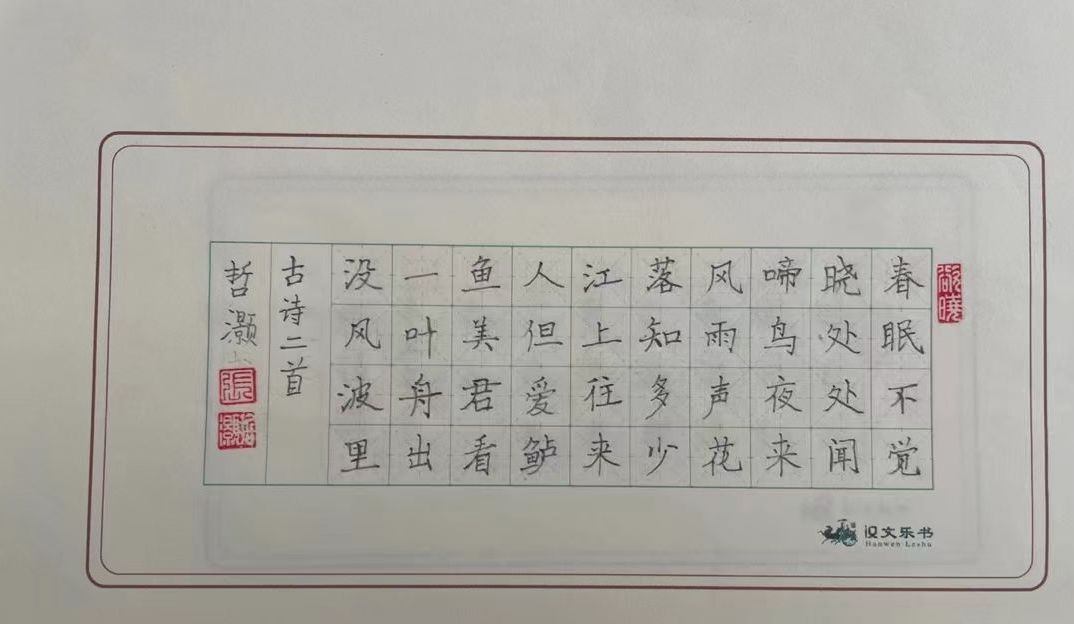 春眠不觉
晓处处闻
啼鸟夜来
风雨声花
落知多少
江上往来
人但爱鲈
鱼美君看
一叶舟出
没风波里
古诗二首
哲灏
汉文乐书
Hanwen Leshu